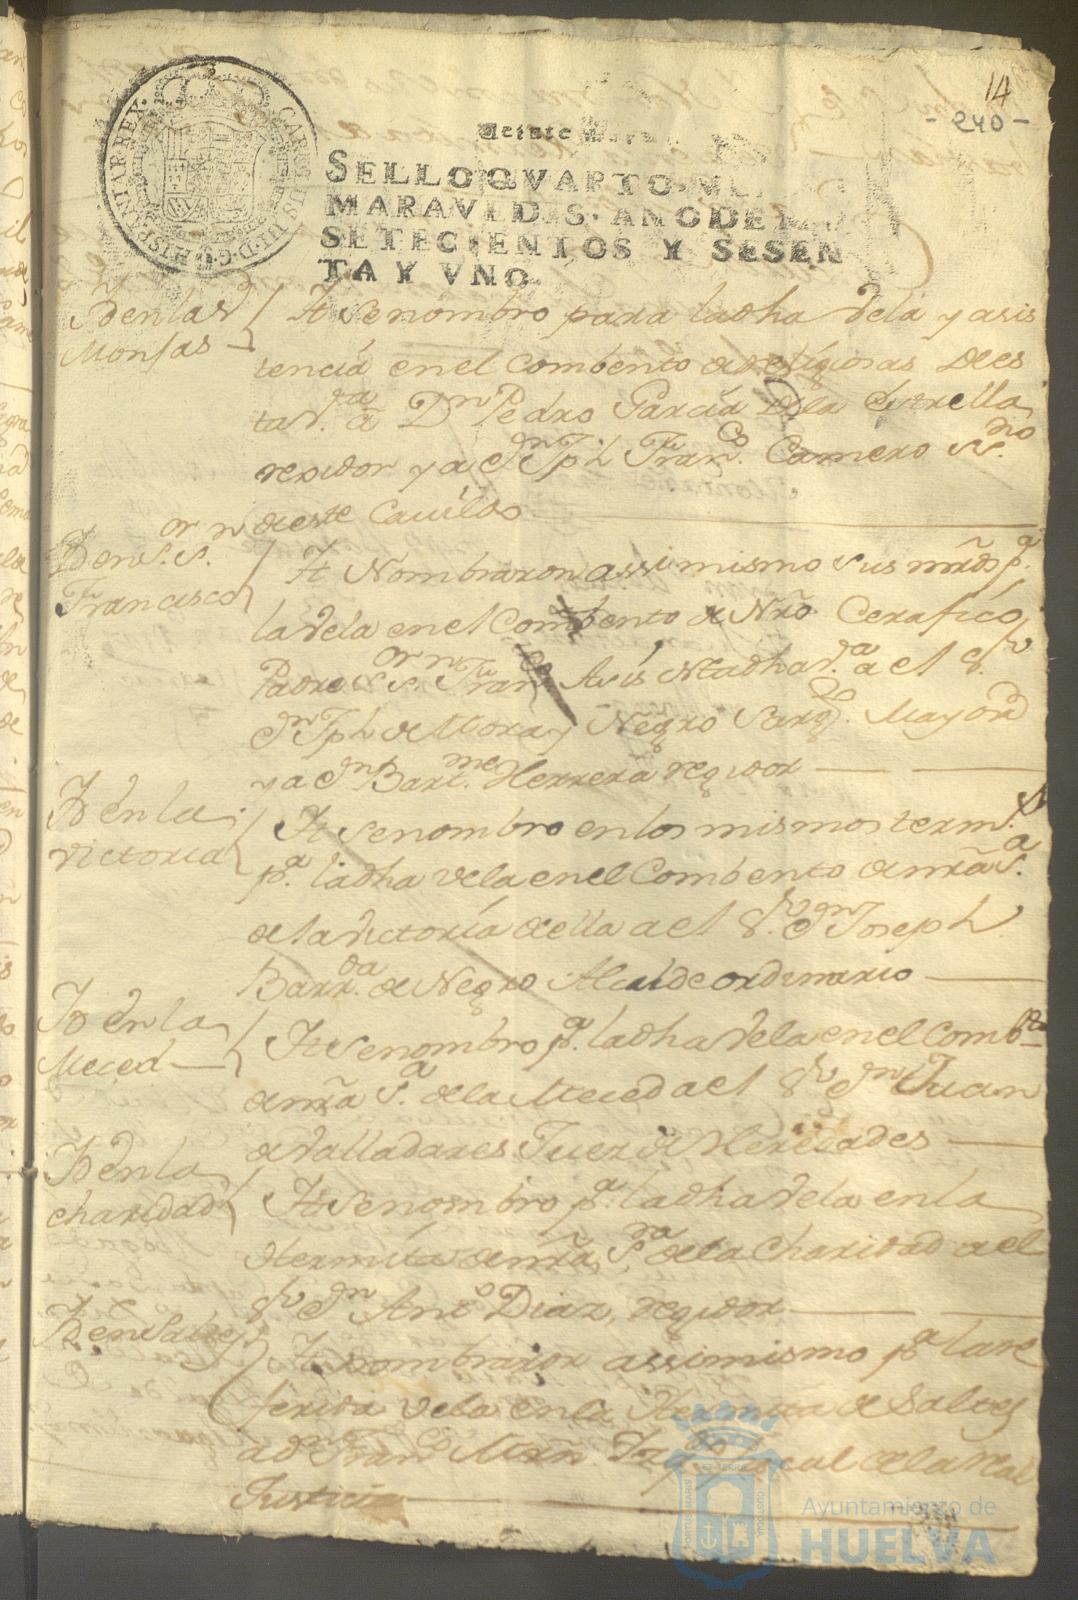 14
- 240 -
CAROLUS III. D. G. HISPANIAR REX.
Veinte
SELLO QVARTO,
MARAVEDIS. AÑO DE
SETECIENTOS Y SESEN
TA Y VNO.
Yd en las
Monjas
Yt Se nombro para la dha Vela y asis
tencia en el Combento de religiosas de es
ta V.ª a Dn Pedro Garcia de la Estrella
residor y a Dn Jph Fran.co Camero
de este Cavildo
Yd en S.or S.n
Francisco
Yt Nombraron assimismo sus mrds p.ª
la Vela en el Combento de Nro Cerafico
Padre S.or S.n Fran.co Asis de dha V.ª a el S.or
Dn Jph de Mora y Negro Sarg.to Mayor
y a Dn Bart.me Herrera regidor
Yd en la
Victoria
Yt Se nombro en los mismos term.s
p.ª la dha vela en el Combento de nrã S.ª
de la Victoria de ella a el S.or Dn Joseph
Barr.da de Negro Alcalde ordinario
Yd en la
Meced
Yt Se nombro p.ª la dha Vela en el Comb.to
de nrã S.ª de la Meced a el S.or Dn Juan
de Valladares Juez de Heredades
Yd en la
charidad
Yt Se nombro p.ª la dha Vela en la
Hermita de nrã S.ra de la Charidad a el
S.or Dn Ant.o Diaz, regidor
Yd en Saltes
Yt nombraron assimismo p.ª la re
ferida vela en la Hermita de Saltes
a Dn Fran.co Mrñ de la Real
Justicia
PORTUS MARIS ET TERRE CUSTODIA
Ayuntamiento de
HUELVA